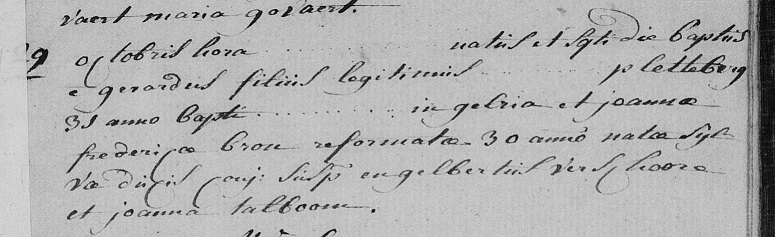 vaert maria govaert.
29 octobris hora ............ natus et sqti die baptus
e gerardus filius legitimus ........ pletteberg
31 anno bapti ............ in gelria et joannæ
fredericæ brou reformatæ 30 anno natæ syl-
væ ducis conj: susp engelbertus verschoore
et joanna talboom.